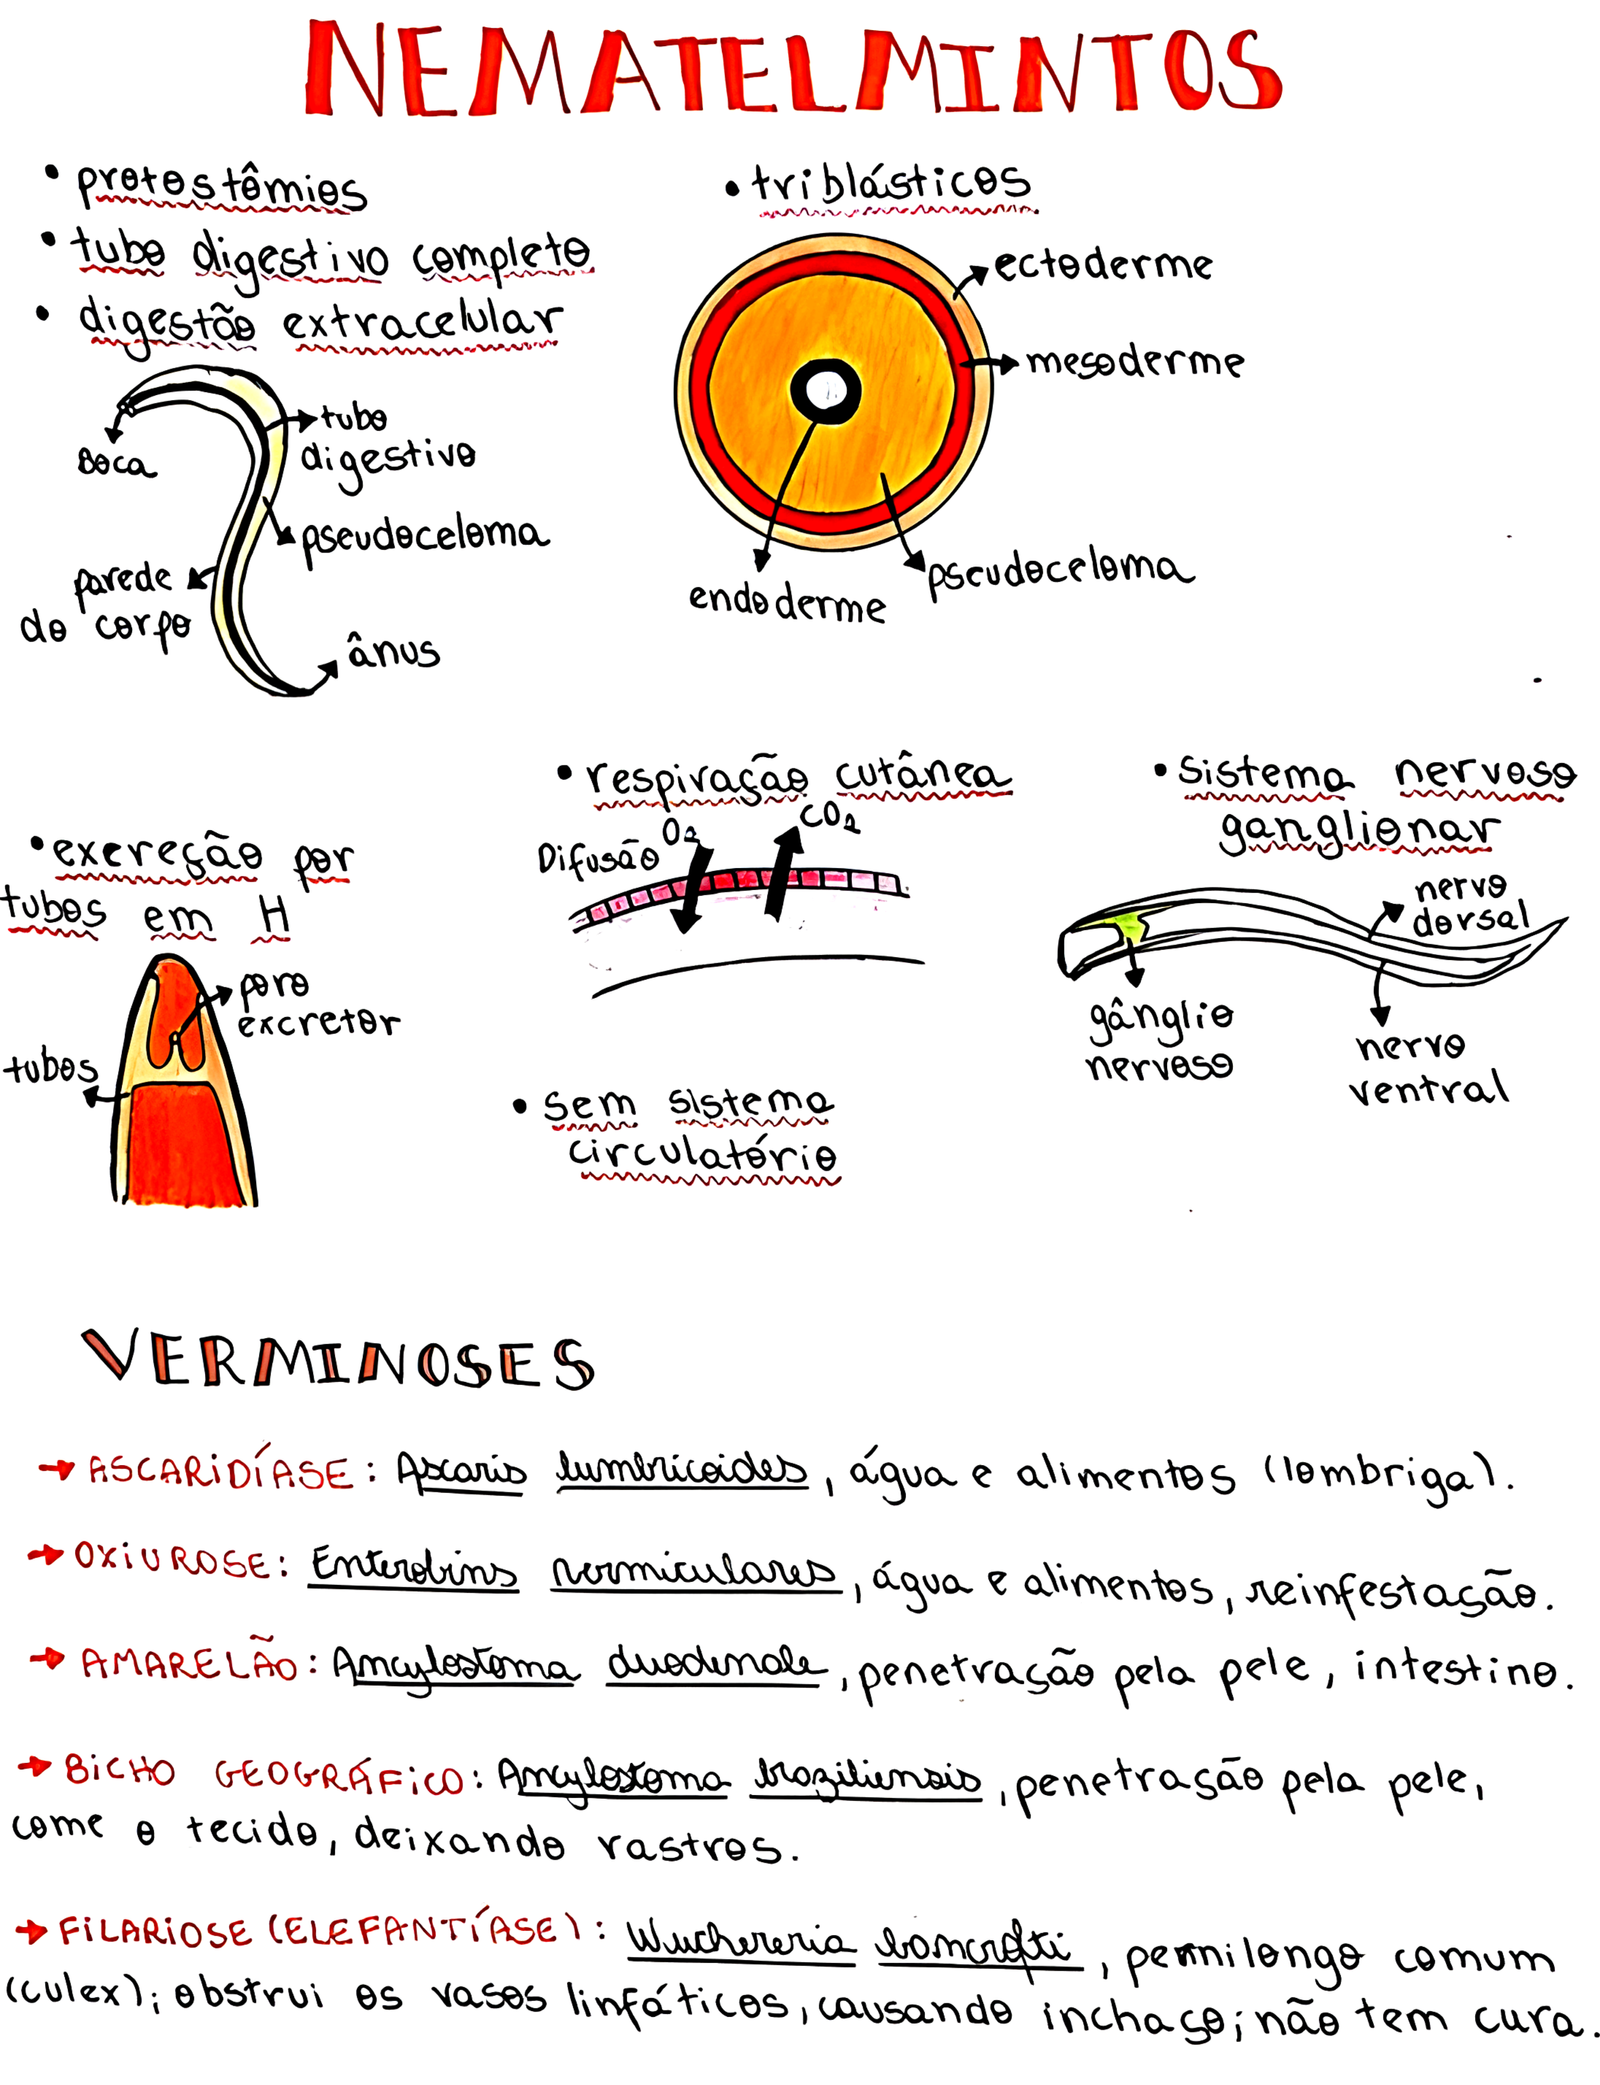 NEMATELMINTOS
• protostômios
• tubo digestivo completo
• digestão extracelular
boca
tubo
digestivo
pseudoceloma
parede
do corpo
ânus
• triblásticos
ectoderme
mesoderme
endoderme
pseudoceloma
• excreção por
tubos em H
poro
excretor
tubos
• respiração cutânea
Difusão
O2
CO2
• sem sistema
circulatório
• sistema nervoso
ganglionar
nervo
dorsal
gânglio
nervoso
nervo
ventral
VERMINOSES
→ ASCARIDÍASE: Ascaris lumbricoides, água e alimentos (lombriga).
→ OXIUROSE: Enterobins vermiculares, água e alimentos, reinfestação.
→ AMARELÃO: Ancylostoma duodenale, penetração pela pele, intestino.
→ BICHO GEOGRÁFICO: Ancylostoma braziliensis, penetração pela pele,
come o tecido, deixando rastros.
→ FILARIOSE (ELEFANTÍASE): Wuchereria bancrofti, pernilongo comum
(culex); obstrui os vasos linfáticos, causando inchaço; não tem cura.